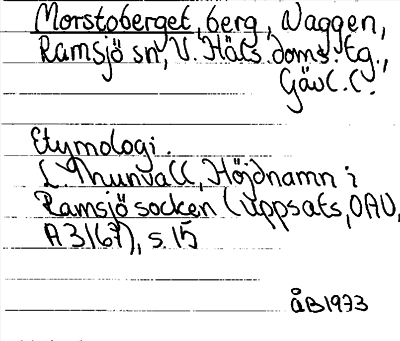 Morstoberget, berg, Naggen,
Ramsjö sn, V. Häls. doms. tg.,
Gävl. l.
Etymologi.
L. Thunvall, Höjdnamn i
Ramsjö socken (uppsats, OAU,
A 3167), s. 15
ÅB1973